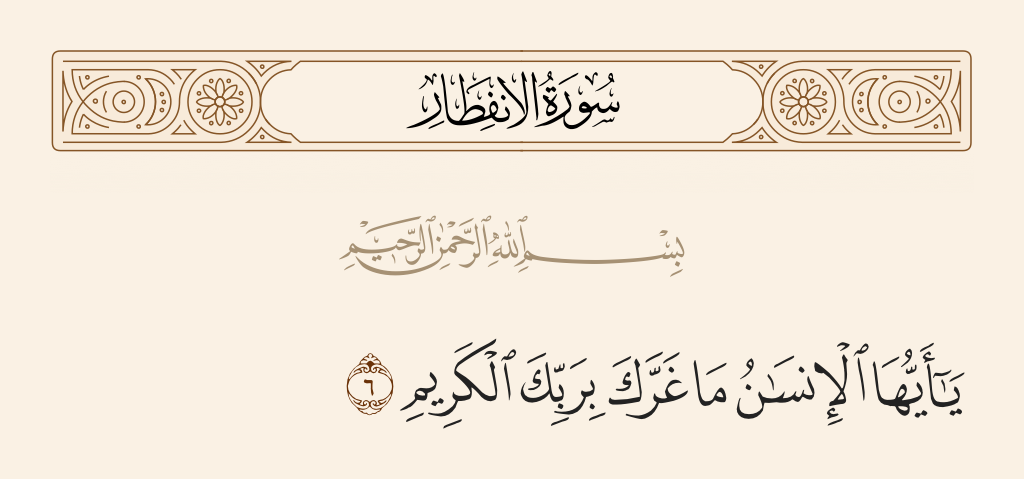 سُورَةُ الانفِطَارِ
بِسْمِ ٱللَّهِ ٱلرَّحْمَٰنِ ٱلرَّحِيمِ
يَـٰٓأَيُّهَا ٱلْإِنسَـٰنُ مَا غَرَّكَ بِرَبِّكَ ٱلْكَرِيمِ ٦